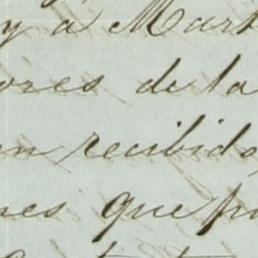 y á Mart
ores de la
en recibido
nes que po